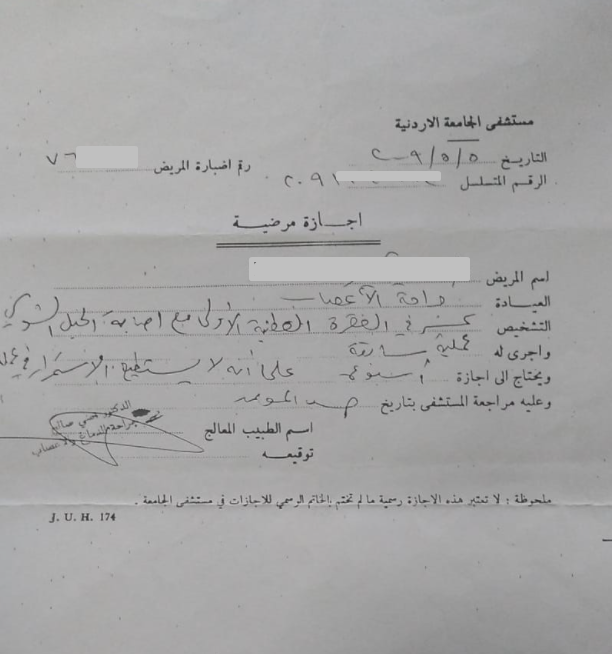 مستشفى الجامعة الاردنية
التاريخ ٢٠٠٩/٥/٥
رقم اضبارة المريض ٧٦
الرقم المتسلسل ٢٠٩١
اجازة مرضية
اسم المريض
العيادة جراحة الأعصاب
التشخيص كسر في الفقرة القطنية الأولى مع اصابة الحبل الشوكي
واجرى له عملية سابقة
ويحتاج الى اجازة أسبوع على أنه لا يستطيع الاستمرار في عمله
وعليه مراجعة المستشفى بتاريخ حسب الموعد
اسم الطبيب المعالج
توقيعه
الدكتور
جراحة الدماغ والاعصاب
ملحوظة : لا تعتبر هذه الاجازة رسمية ما لم تختم بالخاتم الرسمي للاجازات في مستشفى الجامعة .
J. U. H. 174